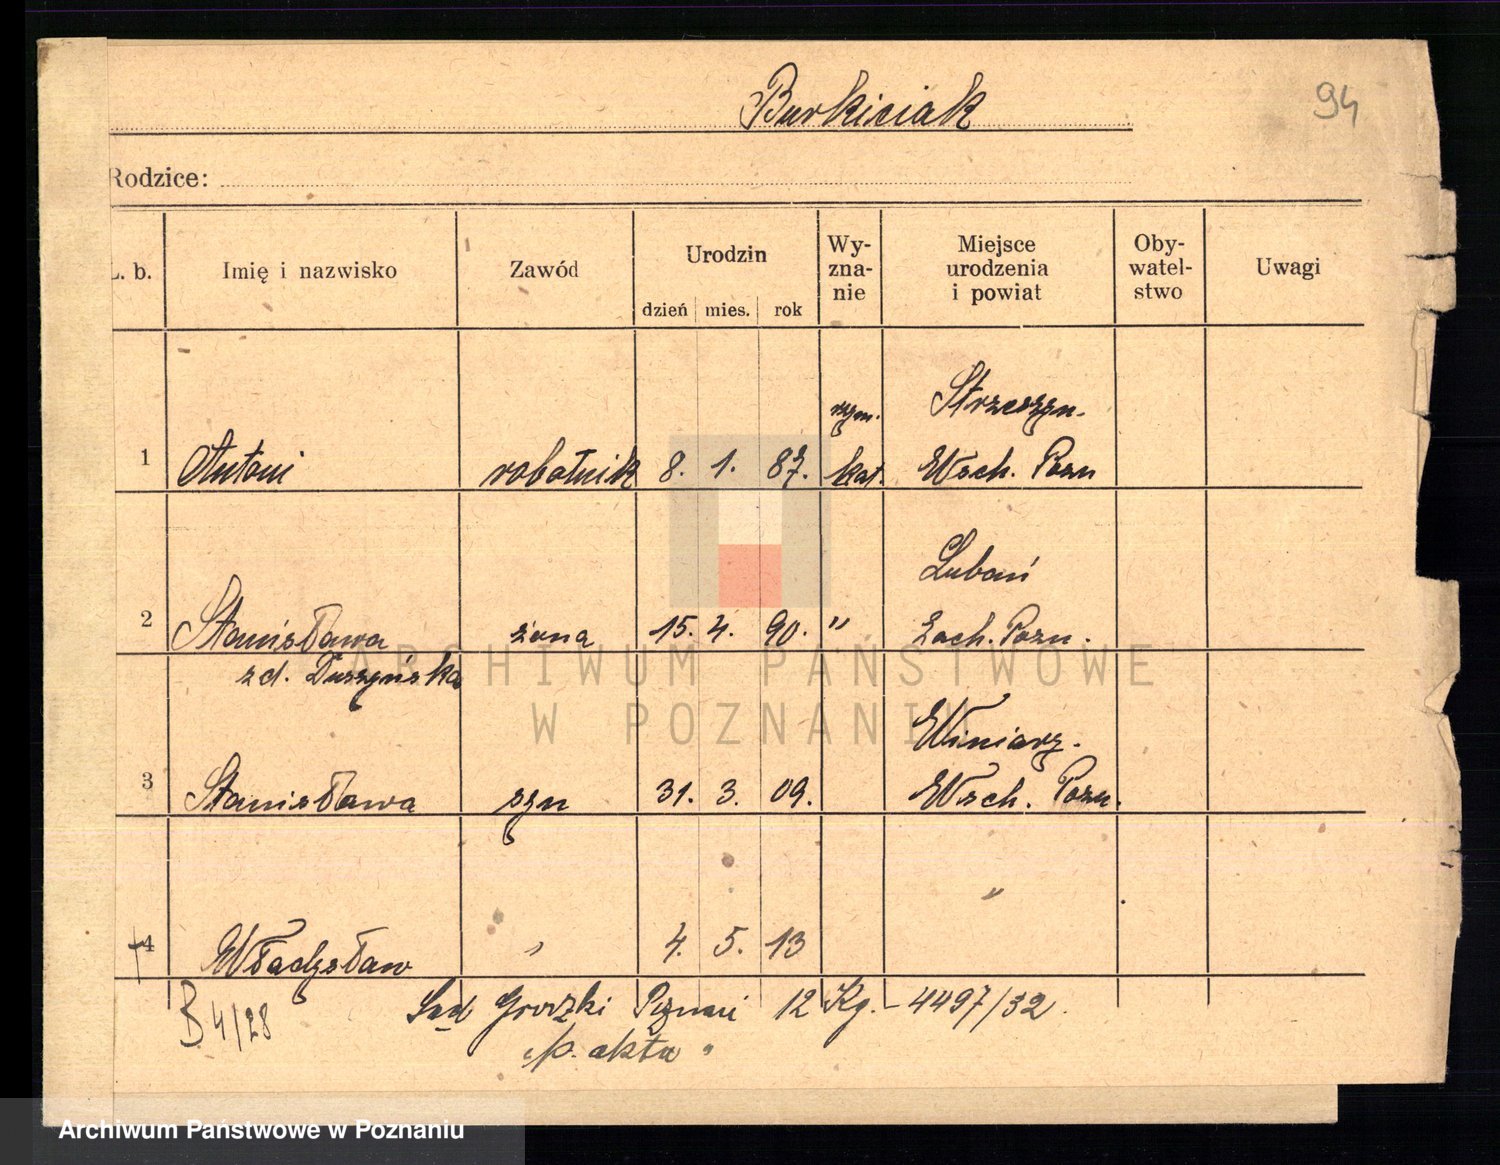 Burkiciak
94
Rodzice:
L. b.
Imię i nazwisko
Zawód
Urodzin
dzień mies. rok
Wy-
zna-
nie
Miejsce
urodzenia
i powiat
Oby-
watel-
stwo
Uwagi
rzym. Strzeszyn.
1 Antoni robotnik 8. 1. 87. kat. Wsch. Pozn
Lubań
2 Stanisława żona 15. 4. 90. " Zach. Pozn.
zd. Duszyńska
Winiary.
3 Stanisława syn 31. 3. 09. Wsch. Pozn.
"
4 Władysław " 4. 5. 13
B. 4/28
Sąd Grodzki Poznań 12 Kg. - 4497/32.
akta
ARCHIWUM PAŃSTWOWE
W POZNANIU
Archiwum Państwowe w Poznaniu